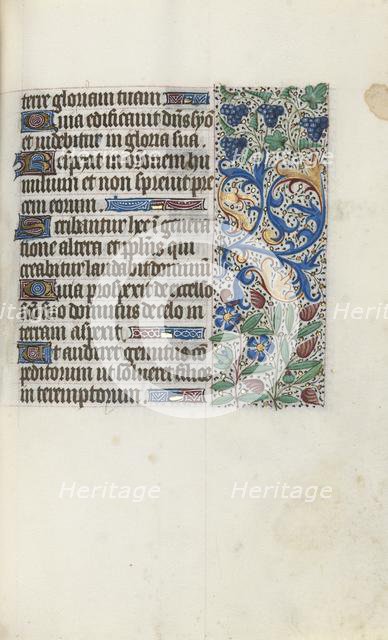 terre gloriam tuam
Quia edificavit dñs syõ
et videbitur in gloria sua.
Respexit in orationem hu
milium et non sprevit pre
cem eorum.
Scribantur hec in genera
tione altera et populus qui
creabitur laudabit dominum
Quia prospexit de excelso
sancto dominus de celo in
terram aspexit.
Ut audiret gemitus cõ
peditorum ut solveret filios
interemptorum.
Heritage Heritage
Heritage Heritage
Heritage Heritage